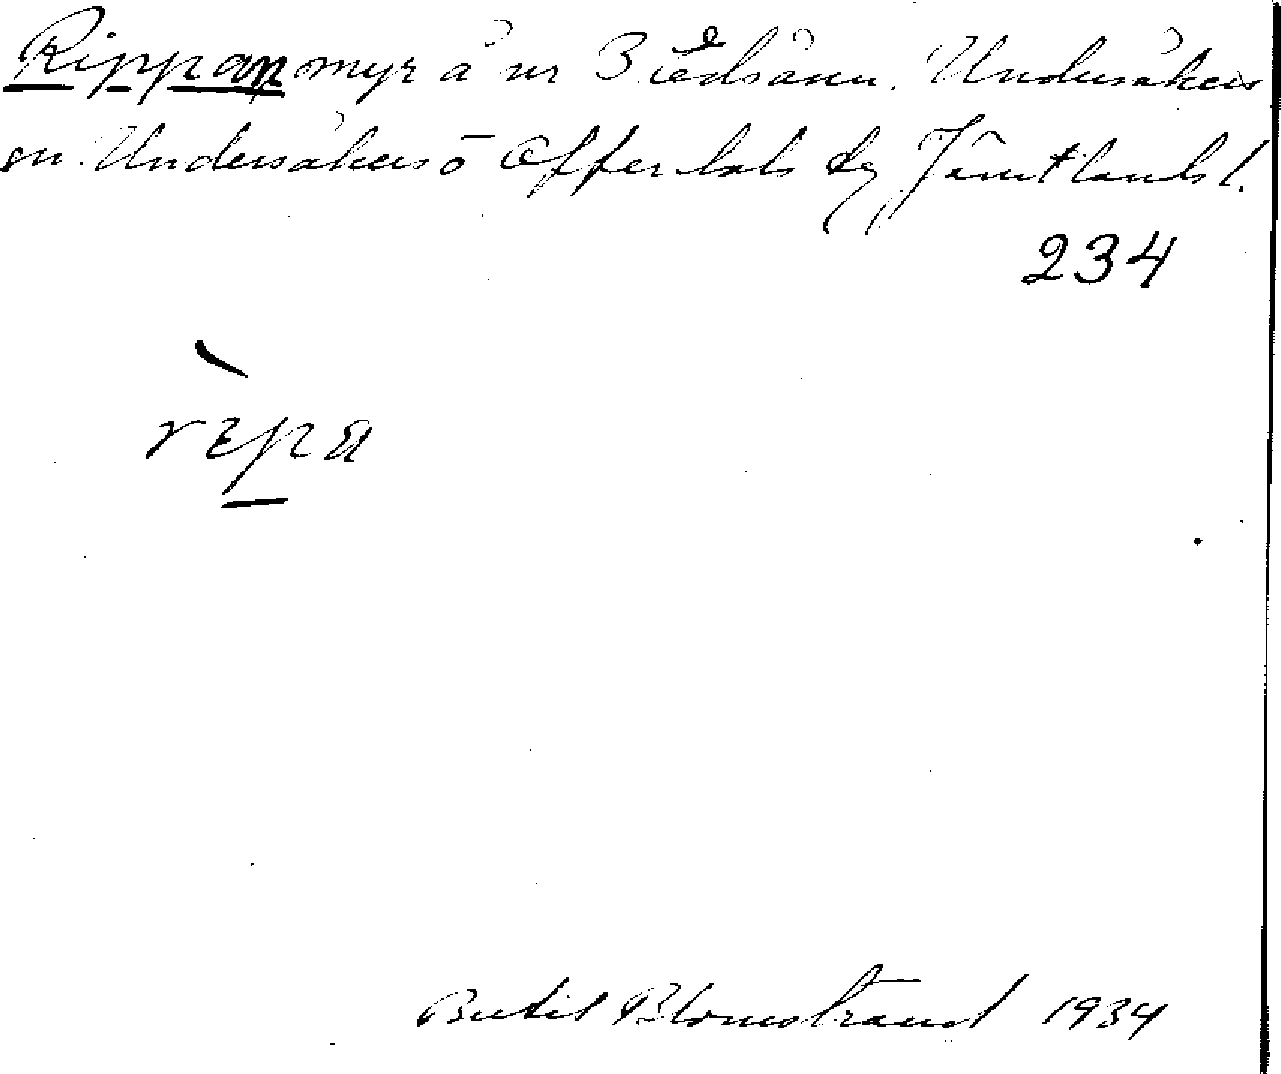 Rippan myr å nr 3 Edsåsen. Undersåkers
sn. Undersåkers o Offerdals tg Jämtlands l.
234
rèpa
Bertil Blomstrand 1934